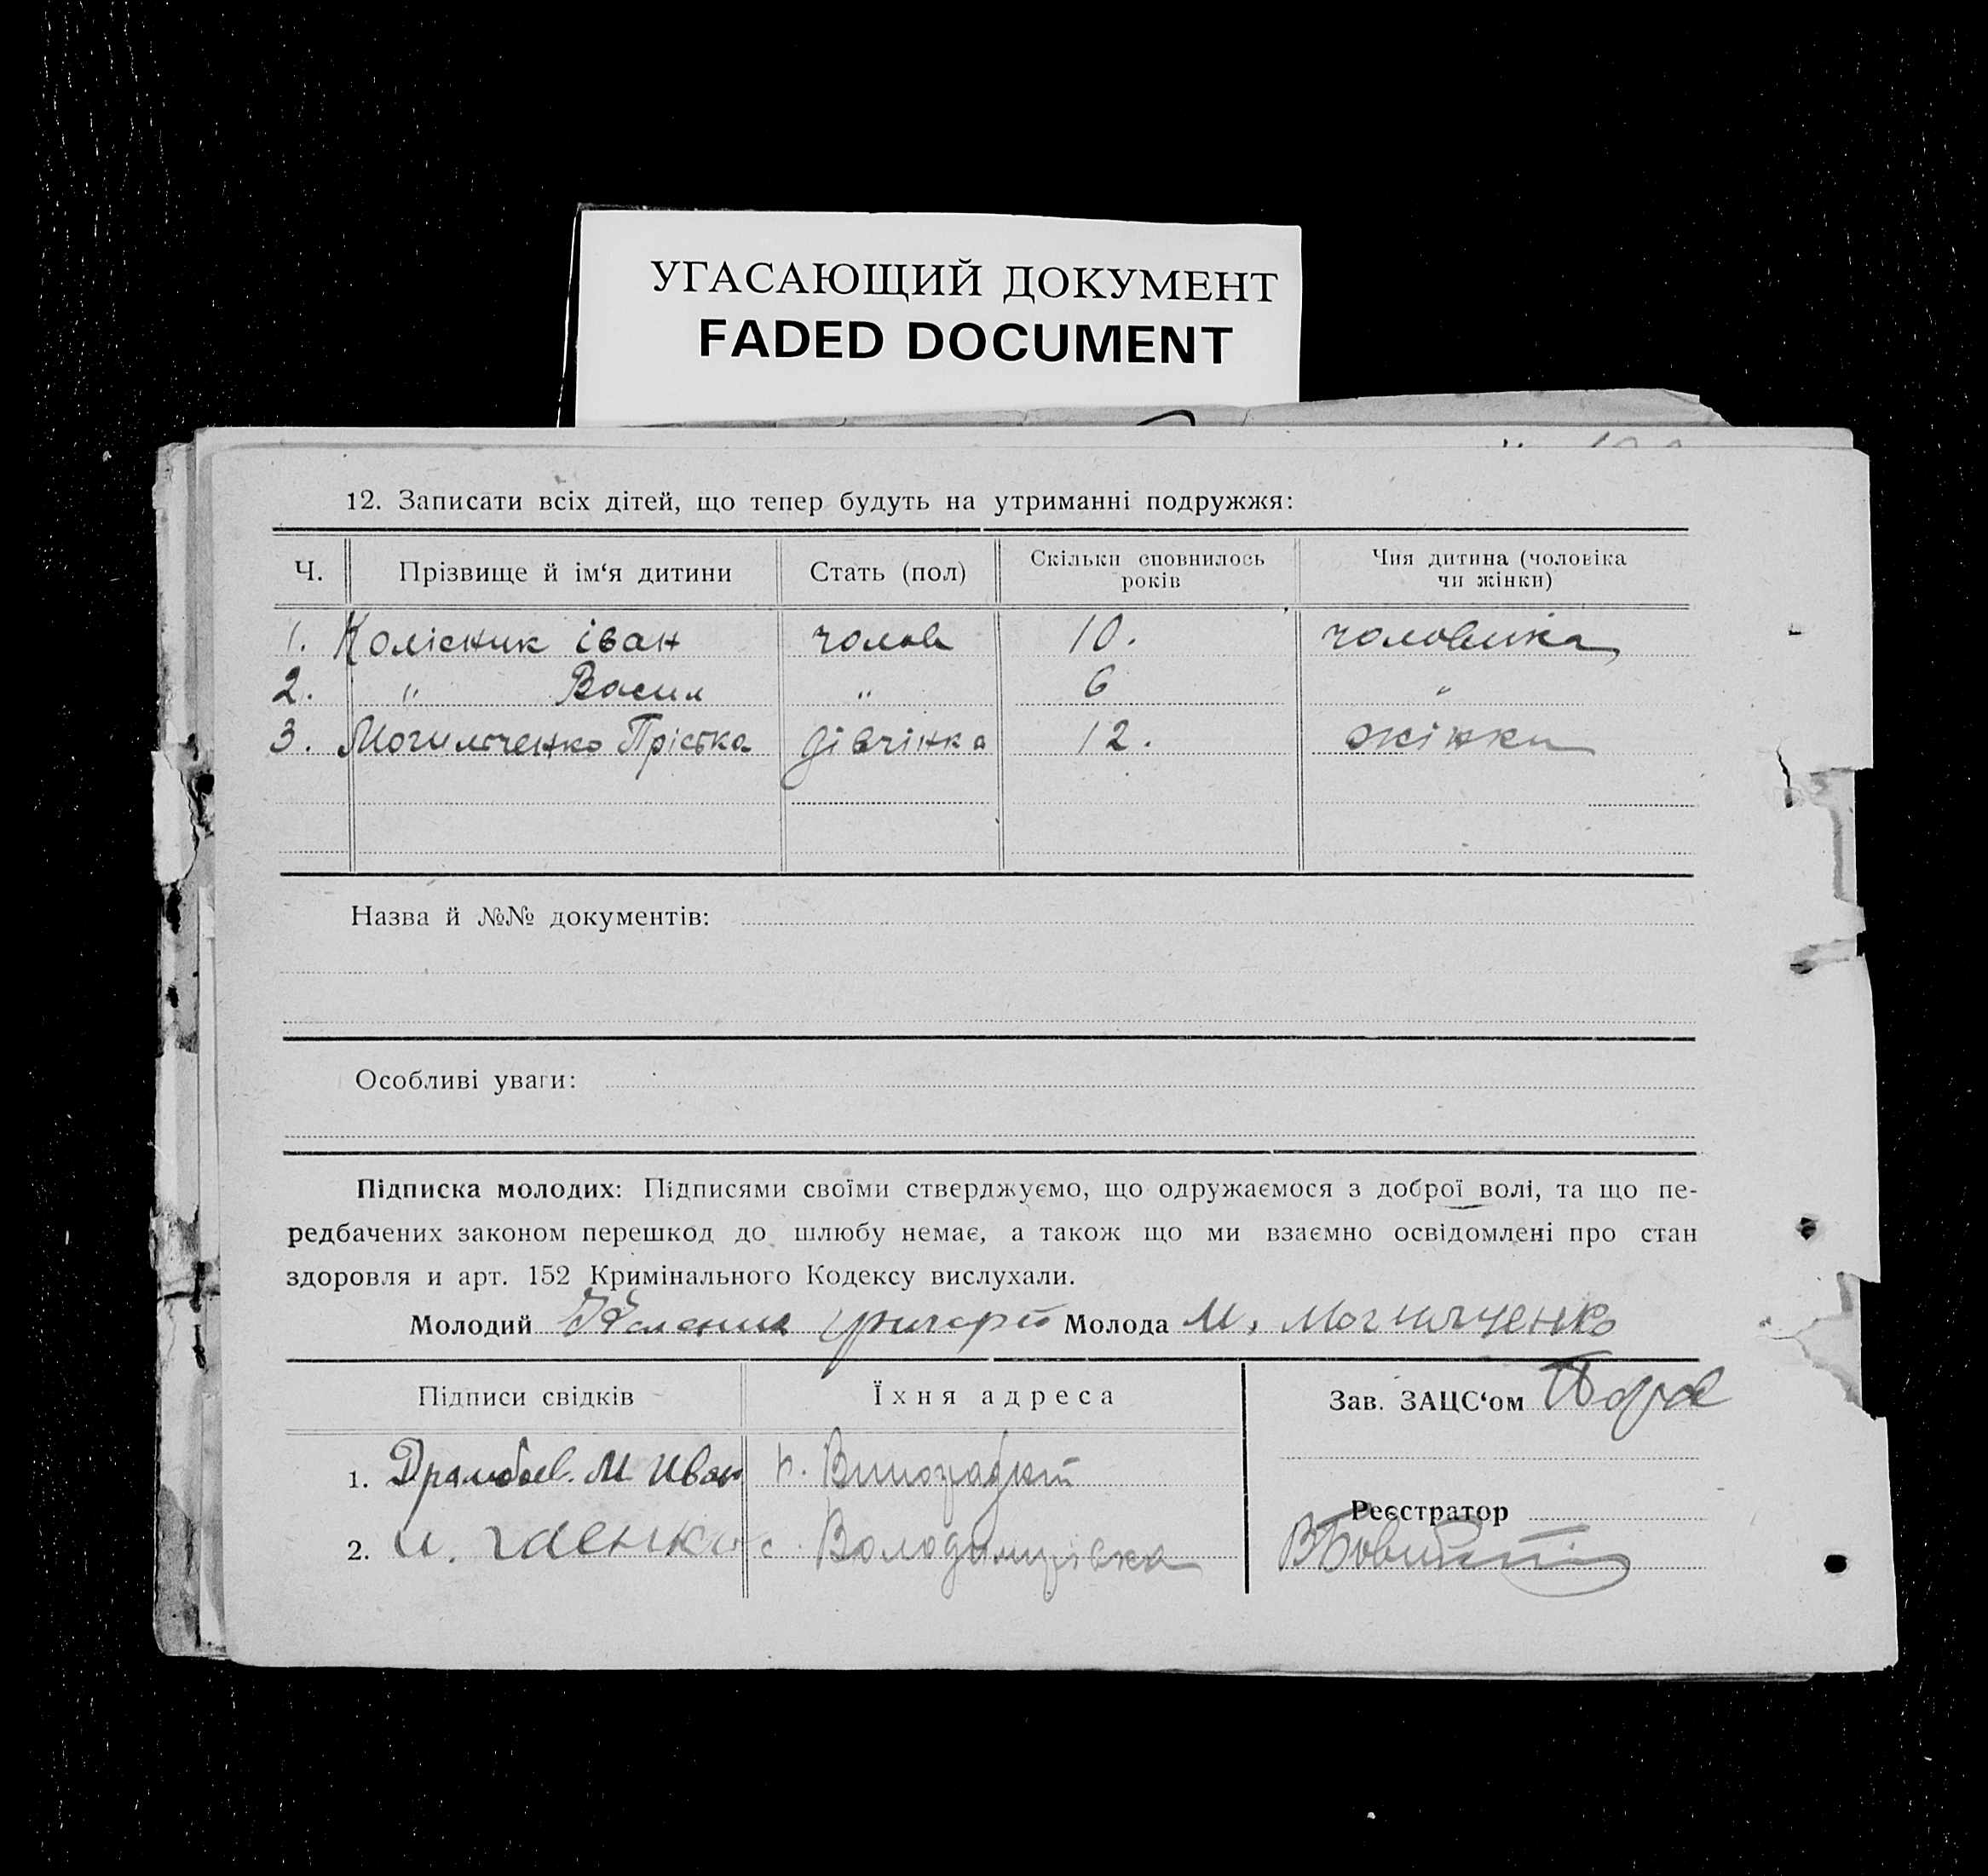 УГАСАЮЩИЙ ДОКУМЕНТ
FADED DOCUMENT
12. Записати всіх дітей, що тепер будуть на утриманні подружжя:
Ч. Прізвище й ім‘я дитини Стать (пол) Скільки сповнилось років Чия дитина (чоловіка чи жінки)
1. Колісник іван чолов 10. чоловика
2. " Васил " 6 "
3. Могильченко Пріська дівчінка 12. жінки
Назва й №№ документів:
Особливі уваги:
Підписка молодих: Підписями своїми стверджуємо, що одружаємося з доброї волі, та що пе-
редбачених законом перешкод до шлюбу немає, а також що ми взаємно освідомлені про стан
здоровля и арт. 152 Кримінального Кодексу вислухали.
Молодий Молода М. Могильченко
Підписи свідків Їхня адреса Зав. ЗАЦС‘ом
1. М Иван
Реєстратор
2. с. Володимирівка